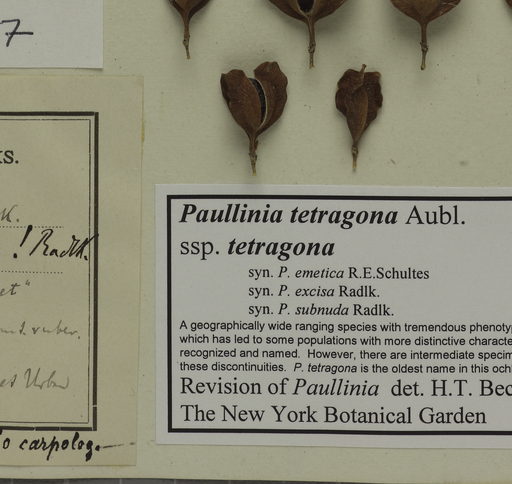 7
s.
K.
! Radlk.
et"
ruber.
et Urban
o carpolog.
Paullinia tetragona Aubl.
ssp. tetragona
syn. P. emetica R.E.Schultes
syn. P. excisa Radlk.
syn. P. subnuda Radlk.
A geographically wide ranging species with tremendous phenotyp
which has led to some populations with more distinctive characte
recognized and named. However, there are intermediate specim
these discontinuities. P. tetragona is the oldest name in this och
Revision of Paullinia det. H.T. Bec
The New York Botanical Garden